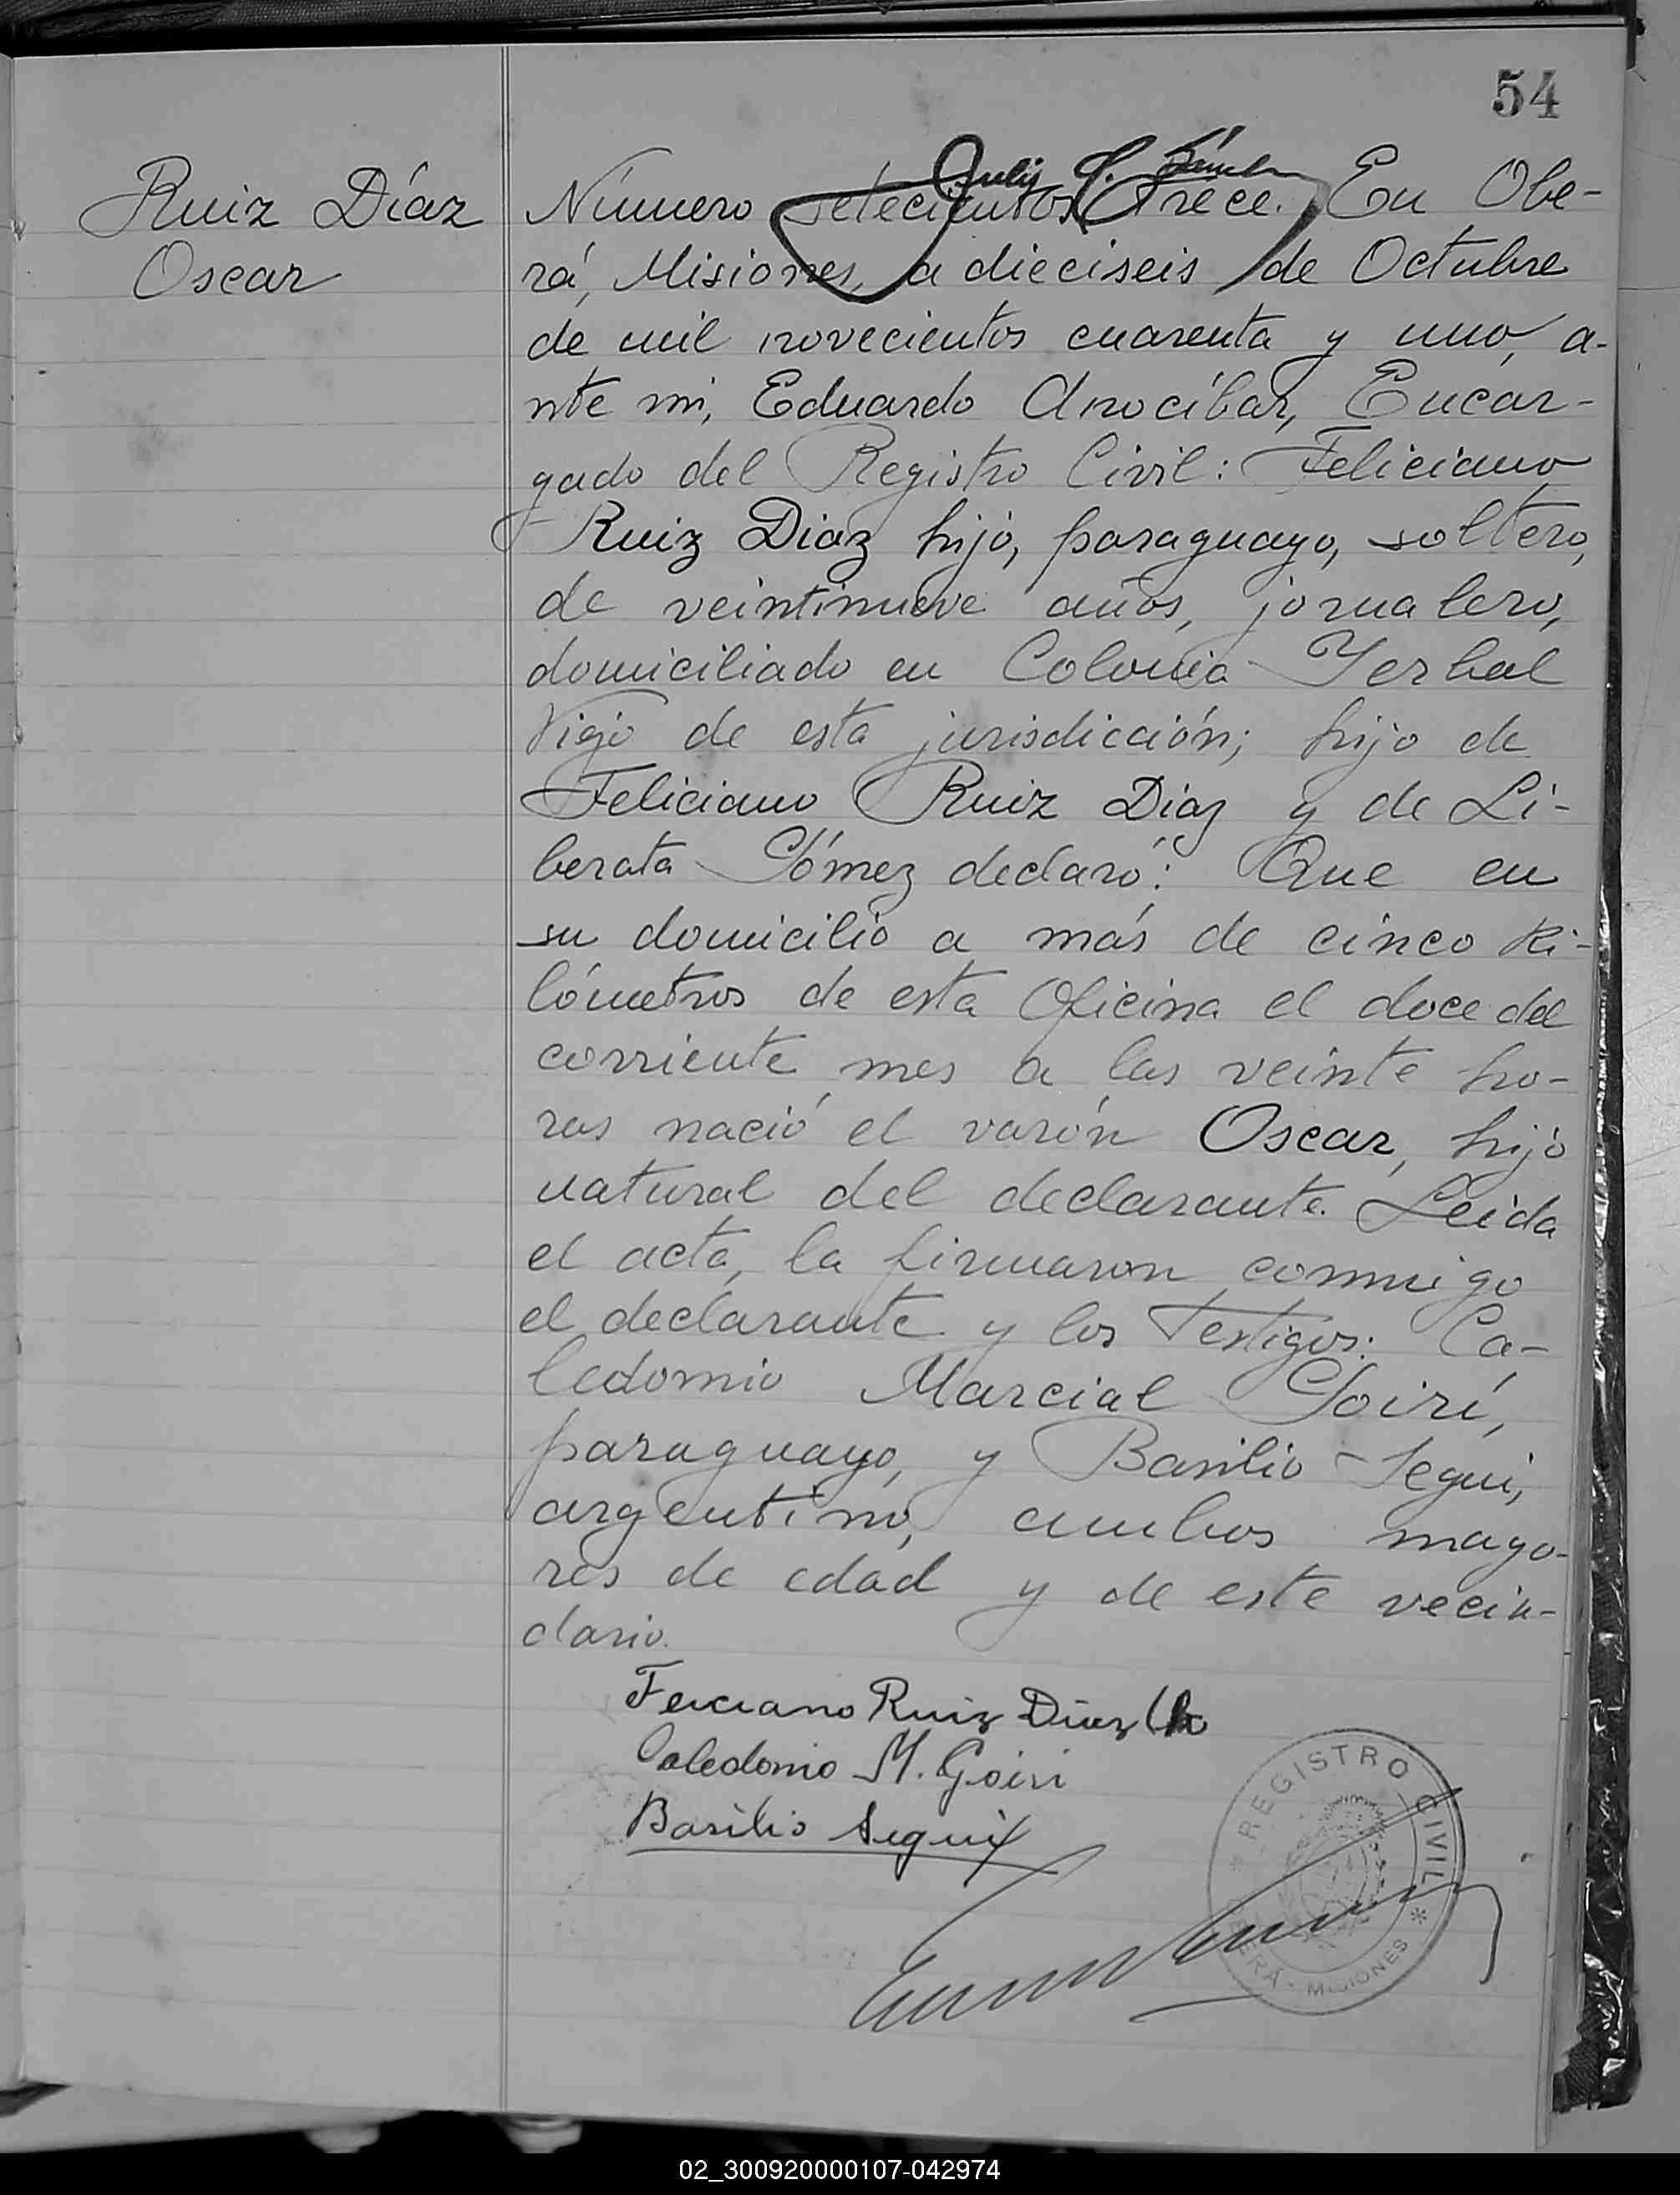 54
Ruiz Díaz
Oscar
Número setecientos trece. En Obe-
rá, Misiones, a dieciseis de Octubre
de mil novecientos cuarenta y uno, a-
nte mi, Eduardo Arocíbar, Encar-
gado del Registro Civil: Feliciano
Ruiz Diaz hijo, paraguayo, soltero,
de veintinueve años, jornalero,
domiciliado en Colonia Yerbal
Viejo de esta jurisdicción; hijo de
Feliciano Ruiz Diaz y de Li-
berata Gómez declaró: Que en
su domicilio a más de cinco ki-
lómetros de esta Oficina el doce del
corriente mes a las veinte ho-
ras nació el varón Oscar, hijo
natural del declarante. Leida
el acta, la firmaron conmigo
el declarante y los testigos: Ca-
ledonio Marcial Goirí,
paraguayo, y Basilio Segui,
argentino, ambos mayo-
res de edad y de este vecin-
dario.
Feliciano Ruiz Díaz (h
Caledonio M. Goiri
Basilio Segui
* REGISTRO CIVIL *
OBERÁ - MISIONES
02_300920000107-042974